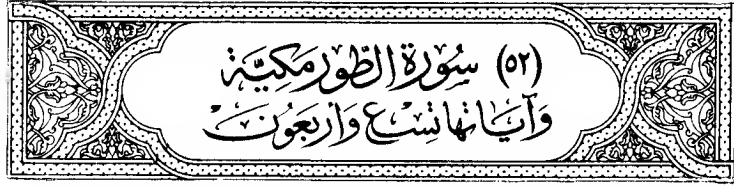 (٥٢) سُورَةُ الطُّورِ مَكِيَّة
وَآيَاتُهَا تِسْعٌ وَأَرْبَعُونَ